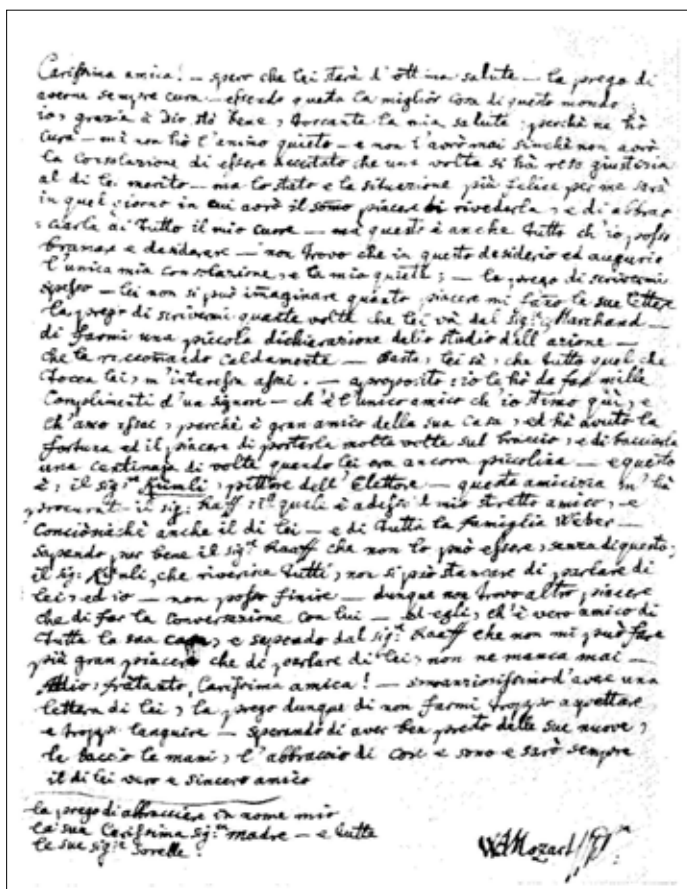 Carissima amica! — spero che lei starà d'ottima salute — la prego di
averne sempre cura — essendo questa la miglior cosa di questo mondo;
io, grazia à Dio, stò bene, toccante la mia salute, perchè ne hò
cura — mà non hò l'animo quieto — e non l'avrò mai sinchè non avrò
la consolazione di essere accertato che una volta si hà reso giustizia
al di lei merito — ma lo stato e la situazione più felice per me sarà
in quel giorno in cui avrò il sommo piacere di rivederla, e di abbrac=
=ciarla di tutto il mio cuore — mà questo è anche tutto ch'io posso
bramare e desiderare — non trovo che in questo desiderio ed augurio
l'unica mia consolazione, e la mia quiete; — la prego di scrivermi
spesso — lei non si può imaginare quanto piacere mi fanno le sue lettere
la prego di scrivermi quante volte che lei và dal Sig: Marchand —
di farmi una piccola dichiarazione dello studio dell azione —
che le raccomando caldamente — Basta, lei sà, che tutto quel che
tocca lei, m'interessa assai. — a proposito, io le hò da far mille
Complimenti d'un signore — ch'è l'unico amico ch'io stimo quì, e
ch'amo, perchè è gran amico della sua Casa, ed hà avuto la
fortuna ed il piacere di porterla molte volte sul braccio, e di bacciarla
una centinaja di volte quando lei era ancora piccolina — e questo
è, il sigre Kümli, pittore dell'Elettore — questa amicizia m'hà
procurata il sig: Raaff, il quale è adesso il mio stretto amico, e
Conciosiachè anche il di lei — e di tutta la famiglia Weber —
sapendo pur bene il sigre Raaff che non lo può essere, senza di questo;
il sig: Kümli, che riverisce tutti, non si può stancare di parlare di
lei, ed io — non posso finire — dunque non trovo altro piacere
che di far la conversazione con lui — ed egli, ch'è vero amico di
tutta la sua casa, e sapendo dal sigre Raaff che non mi può fare
più gran piacere che di parlare di lei, non ne manca mai —
Adio, frattanto, Carissima amica! — sono anziosissimo d'avere una
lettera di lei, la prego dunque di non farmi troppo aspettare
e troppo languire — sperando di aver ben presto delle sue nuove,
le baccio le mani, l'abbraccio di core e sono e sarò sempre
il di lei vero e sincero amico
la prego di abbracciare in nome mio
la sua Carissima sigra madre — e tutte
le sue sigre sorelle.
WAMozart